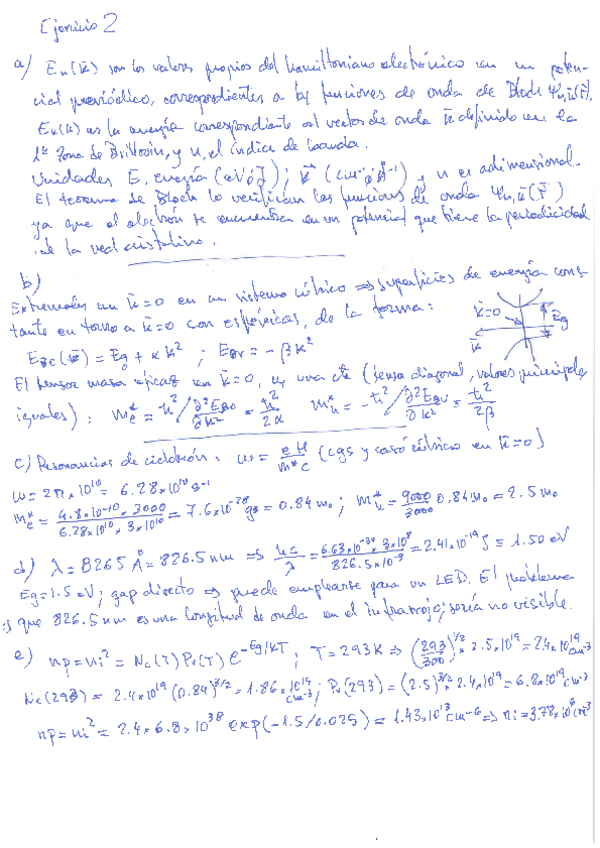 Ejercicio 2
a) En(k) son los valores propios del hamiltoniano electrónico en un poten-
cial periódico, correspondientes a las funciones de onda de Bloch Ψn,k(r).
En(k) es la energía correspondiente al vector de onda k definido en la
1ª Zona de Brillouin, y n, el índice de banda.
Unidades E, energía (eV ó J); k (cm⁻¹ ó Å⁻¹), n es adimensional.
El teorema de Bloch lo verifican las funciones de onda Ψn,k(r)
ya que el electrón se encuentra en un potencial que tiene la periodicidad
de la red cristalina.
b)
Extremales en k=0 en un sistema cúbico ⇒ superficies de energía cons-
tante en torno a k=0 son esféricas, de la forma:
k=0
Eg
k
EBC(k) = Eg + α k² ; EBV = - β k²
El tensor masa eficaz en k=0, es una cte (tensor diagonal, valores principales
iguales): me* = ħ² / ∂²EBC/∂k² = ħ²/2α mh* = -ħ² / ∂²EBV/∂k² = ħ²/2β
c) Resonancias de ciclotrón: ω = eH/m*c (cgs y caso cúbico en k=0)
ω = 2π × 10¹⁰ = 6.28×10¹⁰ s⁻¹
me* = 4.8×10⁻¹⁰ × 3000 / 6.28×10¹⁰ × 3×10¹⁰ = 7.6×10⁻²⁸ g = 0.84 m₀ ; mh* = 9000/3000 0.84 m₀ = 2.5 m₀
d) λ = 8265 Å = 826.5 nm ⇒ hc/λ = 6.63×10⁻³⁴ × 3×10⁸ / 826.5×10⁻⁹ = 2.41×10⁻¹⁹ J = 1.50 eV
Eg = 1.5 eV; gap directo ⇒ puede emplearse para un LED. El problema
es que 826.5 nm es una longitud de onda en el infrarrojo; sería no visible.
e) np = ni² = Nc(T) Pv(T) e^(-Eg/kT) ; T = 293 K ⇒ (293/300)^3/2 × 2.5×10¹⁹ = 2.4×10¹⁹ cm⁻³
Nc(293) = 2.4×10¹⁹ (0.84)^3/2 = 1.86×10¹⁹ cm⁻³ ; Pv(293) = (2.5)^3/2 2.4×10¹⁹ = 6.8×10¹⁹ cm⁻³
np = ni² = 2.4×6.8×10³⁸ exp(-1.5/0.025) = 1.43×10¹³ cm⁻⁶ ⇒ ni = 3.78×10⁶ cm⁻³